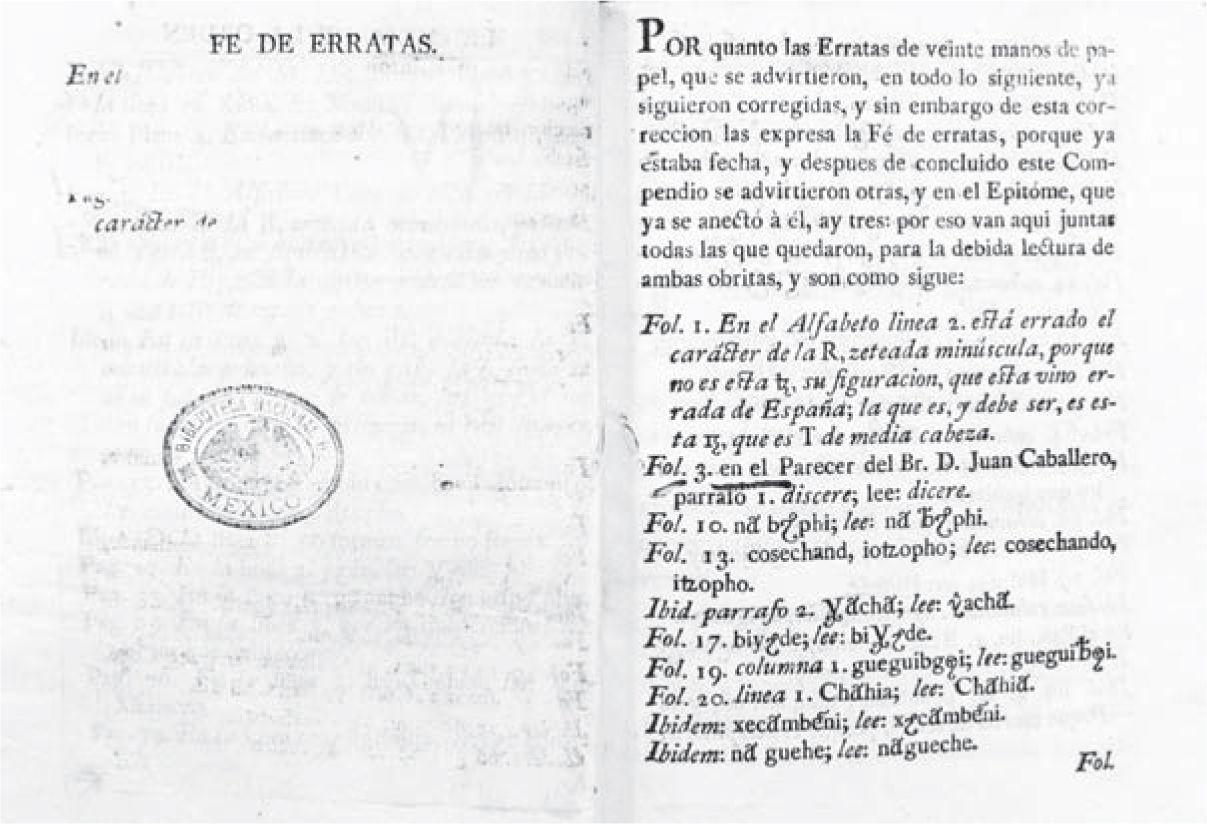 FE DE ERRATAS.
En el
carácter de
BIBLIOTECA NACIONAL
MEXICO
POR quanto las Erratas de veinte manos de pa-
pel, que se advirtieron, en todo lo siguiente, ya
siguieron corregidas, y sin embargo de esta cor-
reccion las expresa la Fé de erratas, porque ya
estaba fecha, y despues de concluido este Com-
pendio se advirtieron otras, y en el Epitóme, que
ya se anectó à él, ay tres: por eso van aqui juntas
todas las que quedaron, para la debida lectura de
ambas obritas, y son como sigue:
Fol. 1. En el Alfabeto linea 2. está errado el
carácter de la R, zeteada minúscula, porque
no es esta , su figuracion, que esta vino er-
rada de España; la que es, y debe ser, es es-
ta , que es T de media cabeza.
Fol. 3. en el Parecer del Br. D. Juan Caballero,
parrafo 1. discere; lee: dicere.
Fol. 10. lee:
Fol. 13. cosechand, iotzopho; lee: cosechando,
itzopho.
Ibid. parrafo 2. lee:
Fol. 17. lee:
Fol. 19. columna 1. lee:
Fol. 20. linea 1. lee:
Ibidem: lee:
Ibidem: guehe; lee:
Fol.